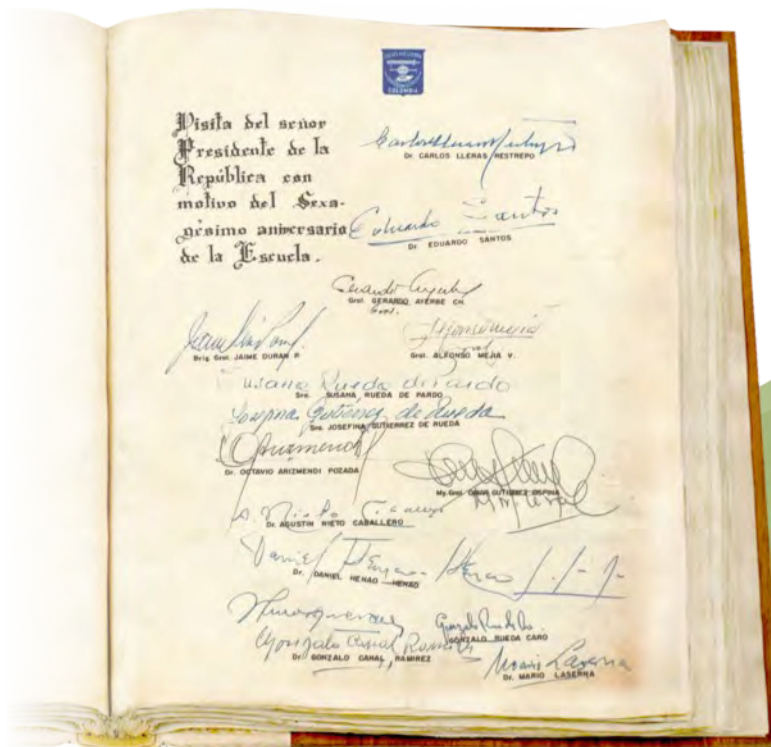 COLOMBIA
Visita del señor
Presidente de la
República con
motivo del Sexa-
gésimo aniversario
de la Escuela.
Carlos Lleras Restrepo
Dr. CARLOS LLERAS RESTREPO
Eduardo Santos
Dr. EDUARDO SANTOS
Gerardo Ayerbe
Gral. GERARDO AYERBE CH.
Gral.
Brig. Gral. JAIME DURAN P.
Alfonso Mejia
Gral. ALFONSO MEJIA V.
Susana Rueda de Pardo
Sra. SUSANA RUEDA DE PARDO
Josefina Gutiérrez de Rueda
Sra. JOSEFINA GUTIERREZ DE RUEDA
O Arizmendi
Dr. OCTAVIO ARIZMENDI POZADA
My. Gral. OMAR GUTIERREZ OSPINA
A. Nieto Caballero
Dr. AGUSTIN NIETO CABALLERO
Daniel Henao Henao
Dr. DANIEL HENAO HENAO
Gonzalo Rueda Caro
GONZALO RUEDA CARO
Gonzalo Canal Ramirez
Dr. GONZALO CANAL RAMIREZ
Mario Laserna
Dr. MARIO LASERNA